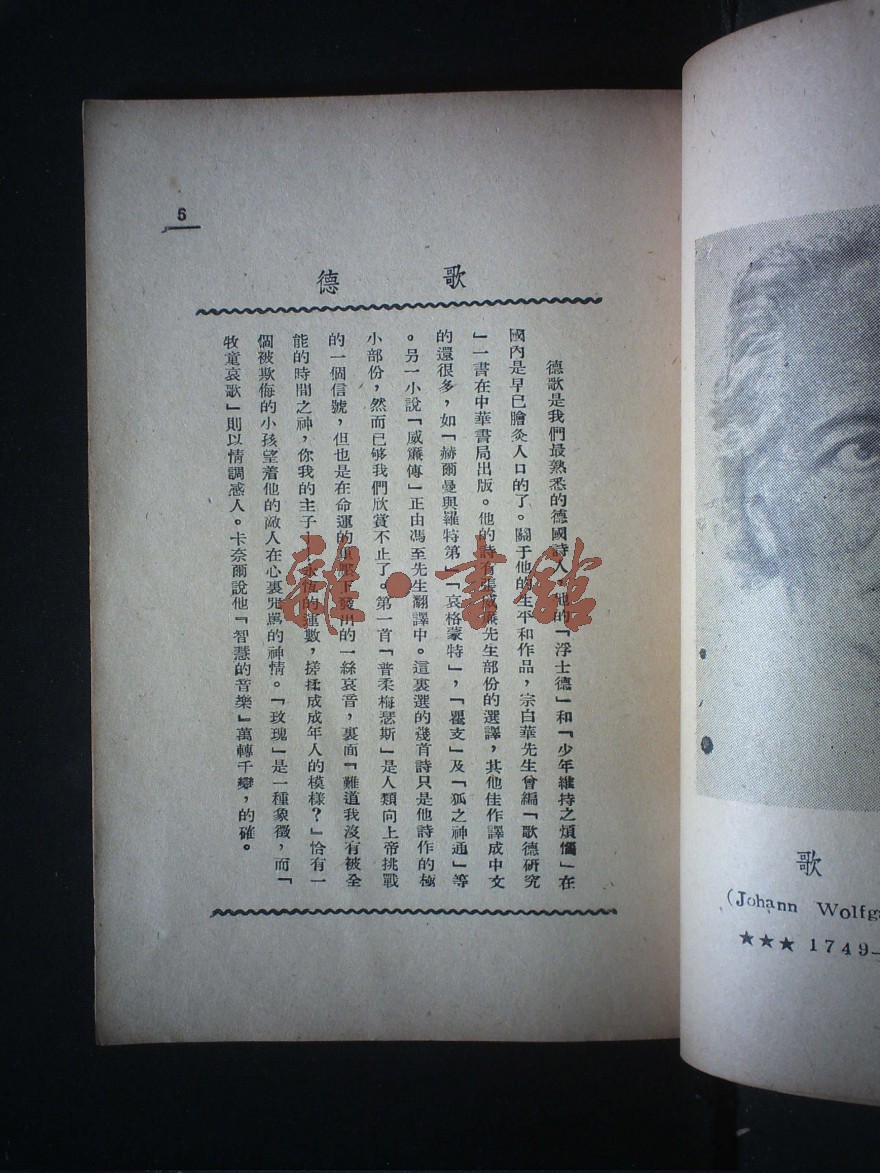 5
歌德
德歌是我們最熟悉的德國詩人，他的「浮士德」和「少年維持之煩惱」在
國內是早已膾炙人口的了。關于他的生平和作品，宗白華先生曾編「歌德研究
」一書在中華書局出版。他的詩有張威廉先生部份的選譯，其他佳作譯成中文
的還很多，如「赫爾曼與羅特第」「哀格蒙特」，「覊支」及「狐之神通」等
。另一小說「威廉傳」正由馮至先生翻譯中。這裏選的幾首詩只是他詩作的極
小部份，然而已够我們欣賞不止了。第一首「普柔梅瑟斯」是人類向上帝挑戰
的一個信號，但也是在命運的重壓下發出的一絲哀音，裏面「難道我沒有被全
能的時間之神，你我的主子——永恆的運數，搓揉成成年人的模樣？」恰有一
個被欺侮的小孩望着他的敵人在心裏咒罵的神情。「玫瑰」是一種象徵，而「
牧童哀歌」則以情調感人。卡奈爾說他「智慧的音樂」萬轉千變，的確。
歌
(Johann Wolfga
★★★ 1749—
雜·書館